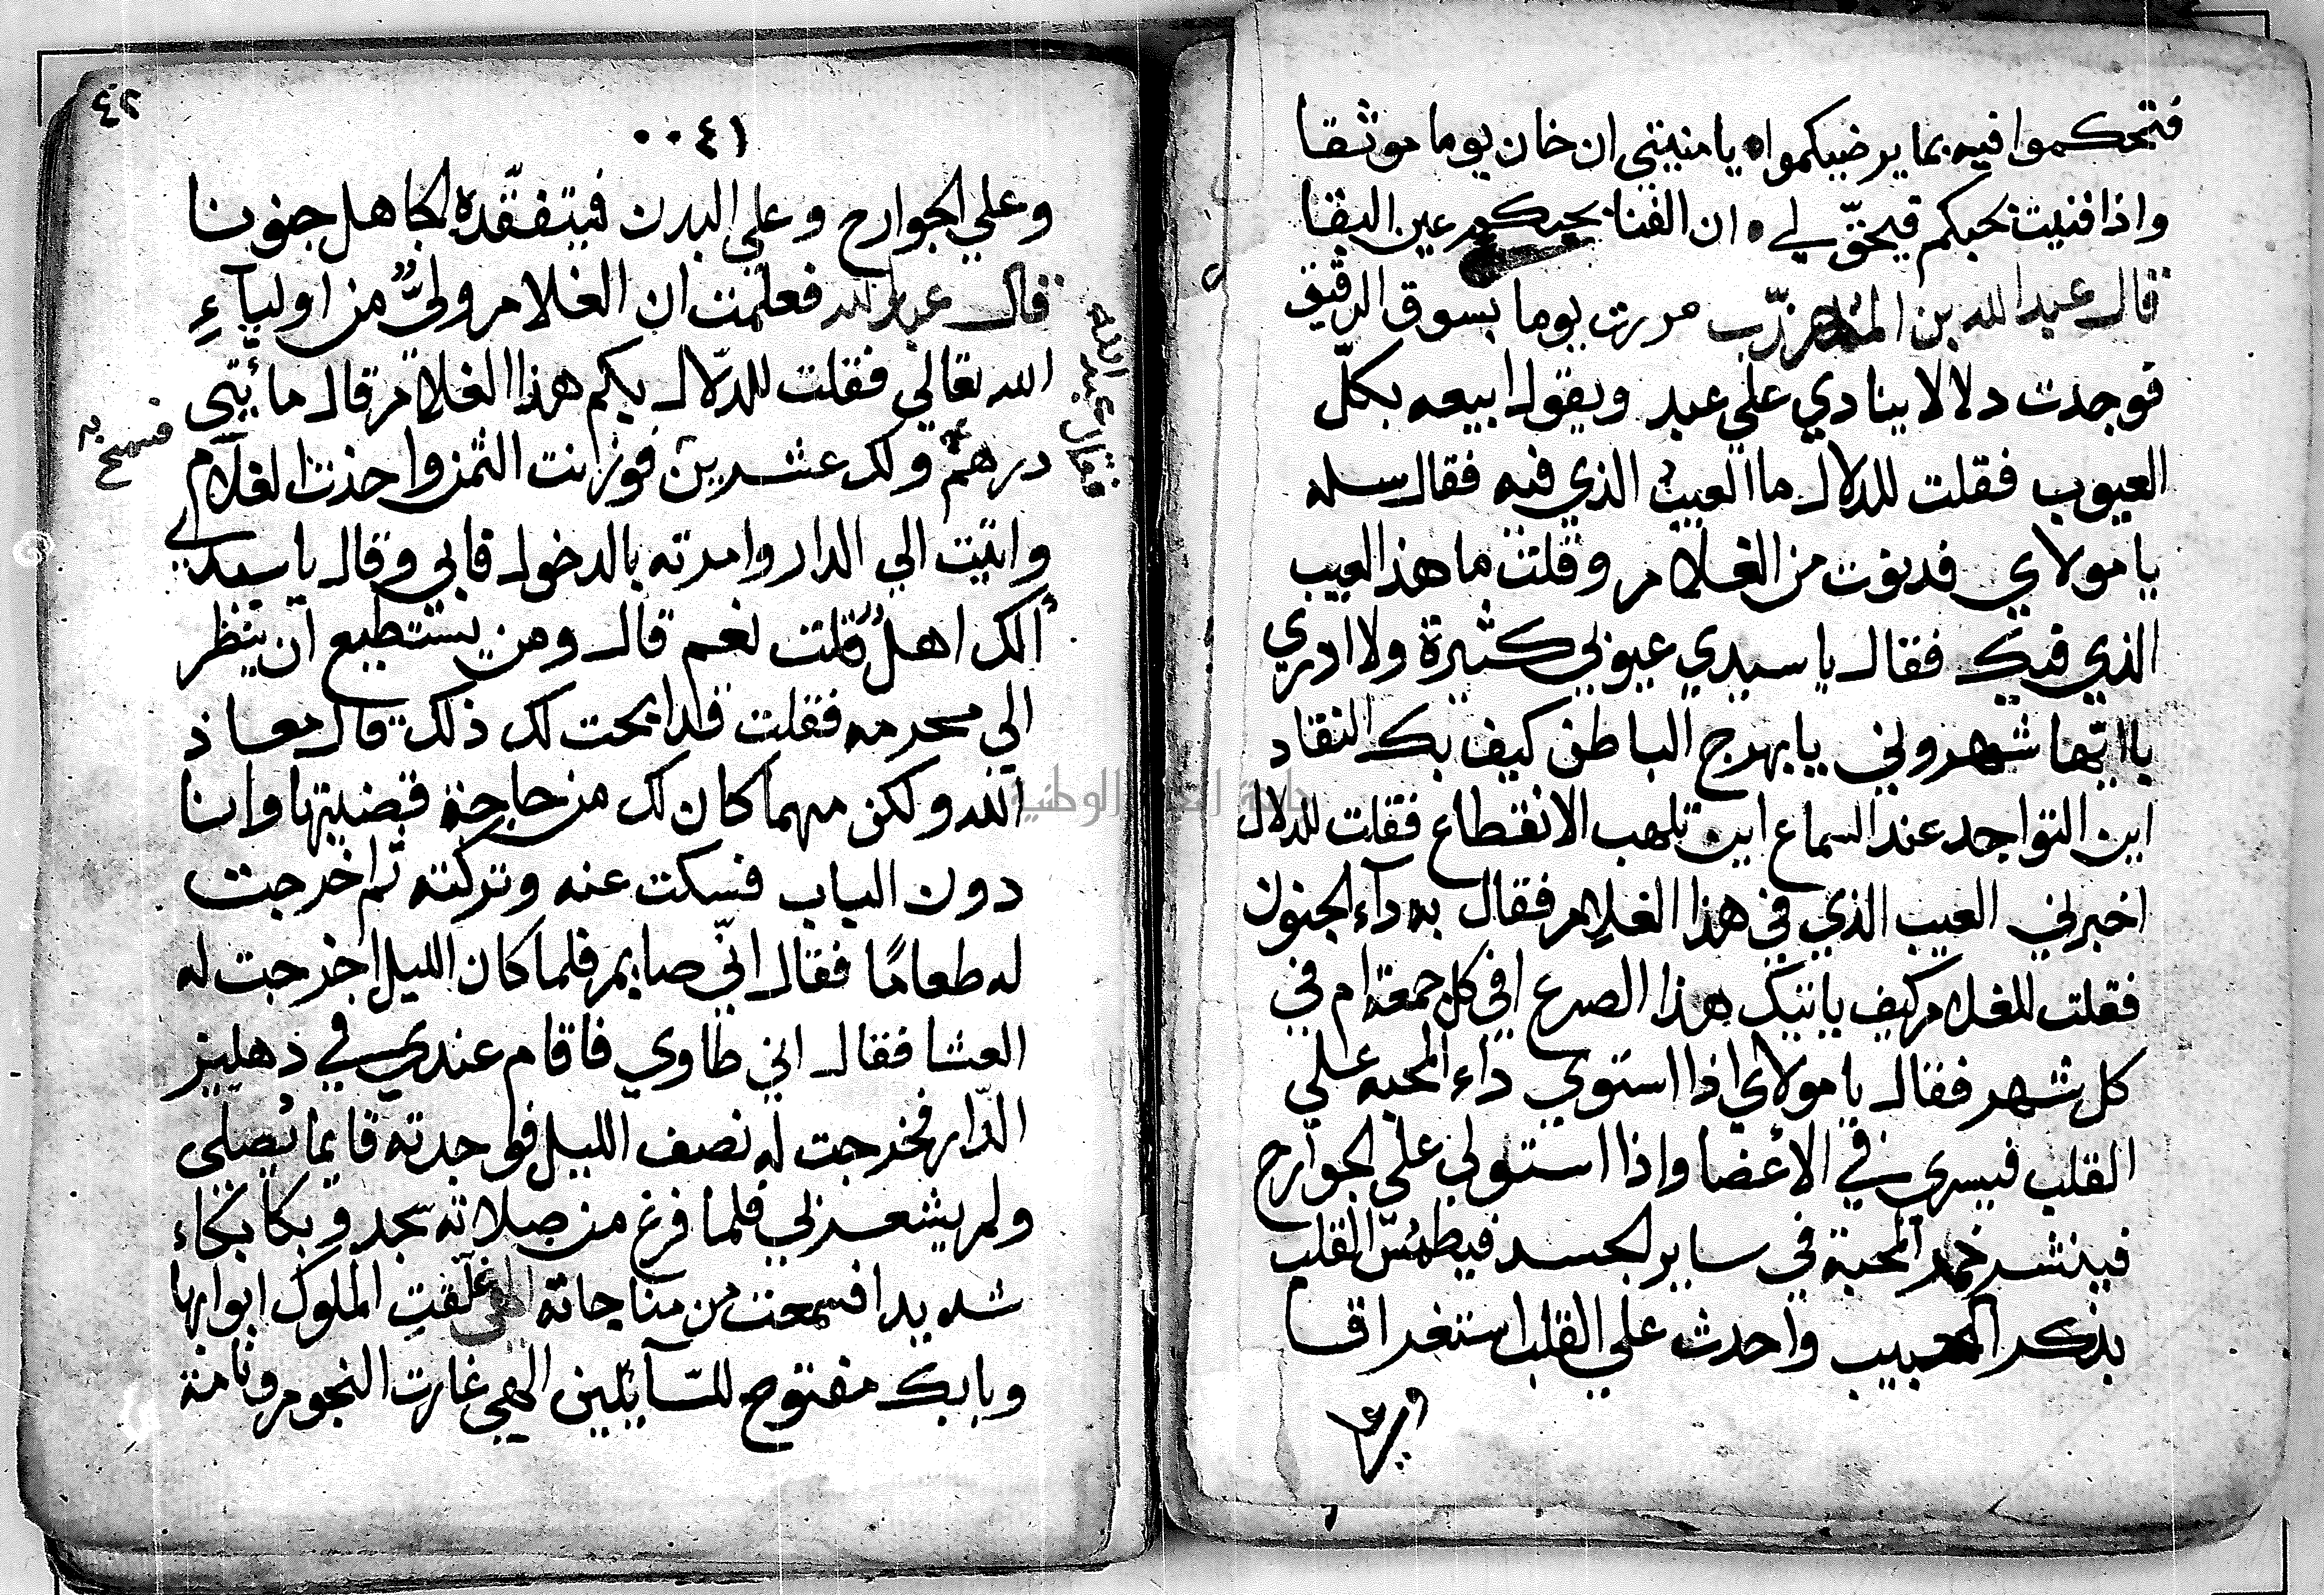 فتحكموا فيه بما يرضيكموا يا منيتي ان خان يوما موثقا
واذا فنيت بحبكم فيحقّ لي ان الفنا بحبكم عين البقا
قال عبد الله بن مررت يوما بسوق الرقيق
فوجدت دلالا ينادي علي عبد ويقول ابيعه بكلّ
العيوب فقلت للدلال ما العيب الذي فيه فقال سله
يا مولاي فدنوت من الغلام وقلت ما هذا العيب
الذي فيك فقال يا سيدي عيوبي كثيرة ولا ادري
بااتيها شهروني يا بهرج الباطن كيف بك النقاد
اين التواجد عند السماع اين تلهب الانقطاع فقلت للدلال
اخبرني العيب الذي في هذا الغلام فقال به دآء الجنون
فقلت للغلام كيف ياتيك هذا الصرع افي كل جمعة ام في
كل شهر فقال يا مولاي اذا استوي داء المحبه علي
القلب فيسري في الاعضا واذا استولي علي الجوارح
فينشر خمر المحبة في ساير الجسد فيطمس القلب
بذكر الحبيب واحدث علي القلب استغراقا
٤٢
٠٠٤١
وعلي الجوارح وعلي البدن فيتفقّده الجاهل جنونا
قال عبد الله فعلمت ان الغلام وليٌّ من اوليآءِ
الله تعالي فقلت للدلّال بكم هذا الغلام قال مأيتي
درهم ولك عشرين فوزنت الثمن واخذت الغلام
واتيت الي الدار وامرته بالدخول فابي وقال يا سيدي
ألك اهلٌ قلت نعم قال ومن يستطيع ان ينظر
الي محرمه فقلت قد ابحت لك ذلك قال معاذ
الله ولكن مهما كان لك من حاجة قضيتها وانا
دون الباب فسكت عنه وتركته ثم اخرجت
له طعامًا فقال انّي صايم فلما كان الليل اخرجت له
العشا فقال اني طاوي فاقام عندي في دهليز
الدّار فخرجت له نصف الليل فوجدته قايما يُصلّي
ولم يشعر بي فلما فرغ من صلاته سجد وبكا بكاء
شديدا فسمعت من مناجاته الهي غلّقتِ الملوك ابوابها
وبابك مفتوح للسّآيلين الهي غارت النجوم ونامة
فقال عبد الله